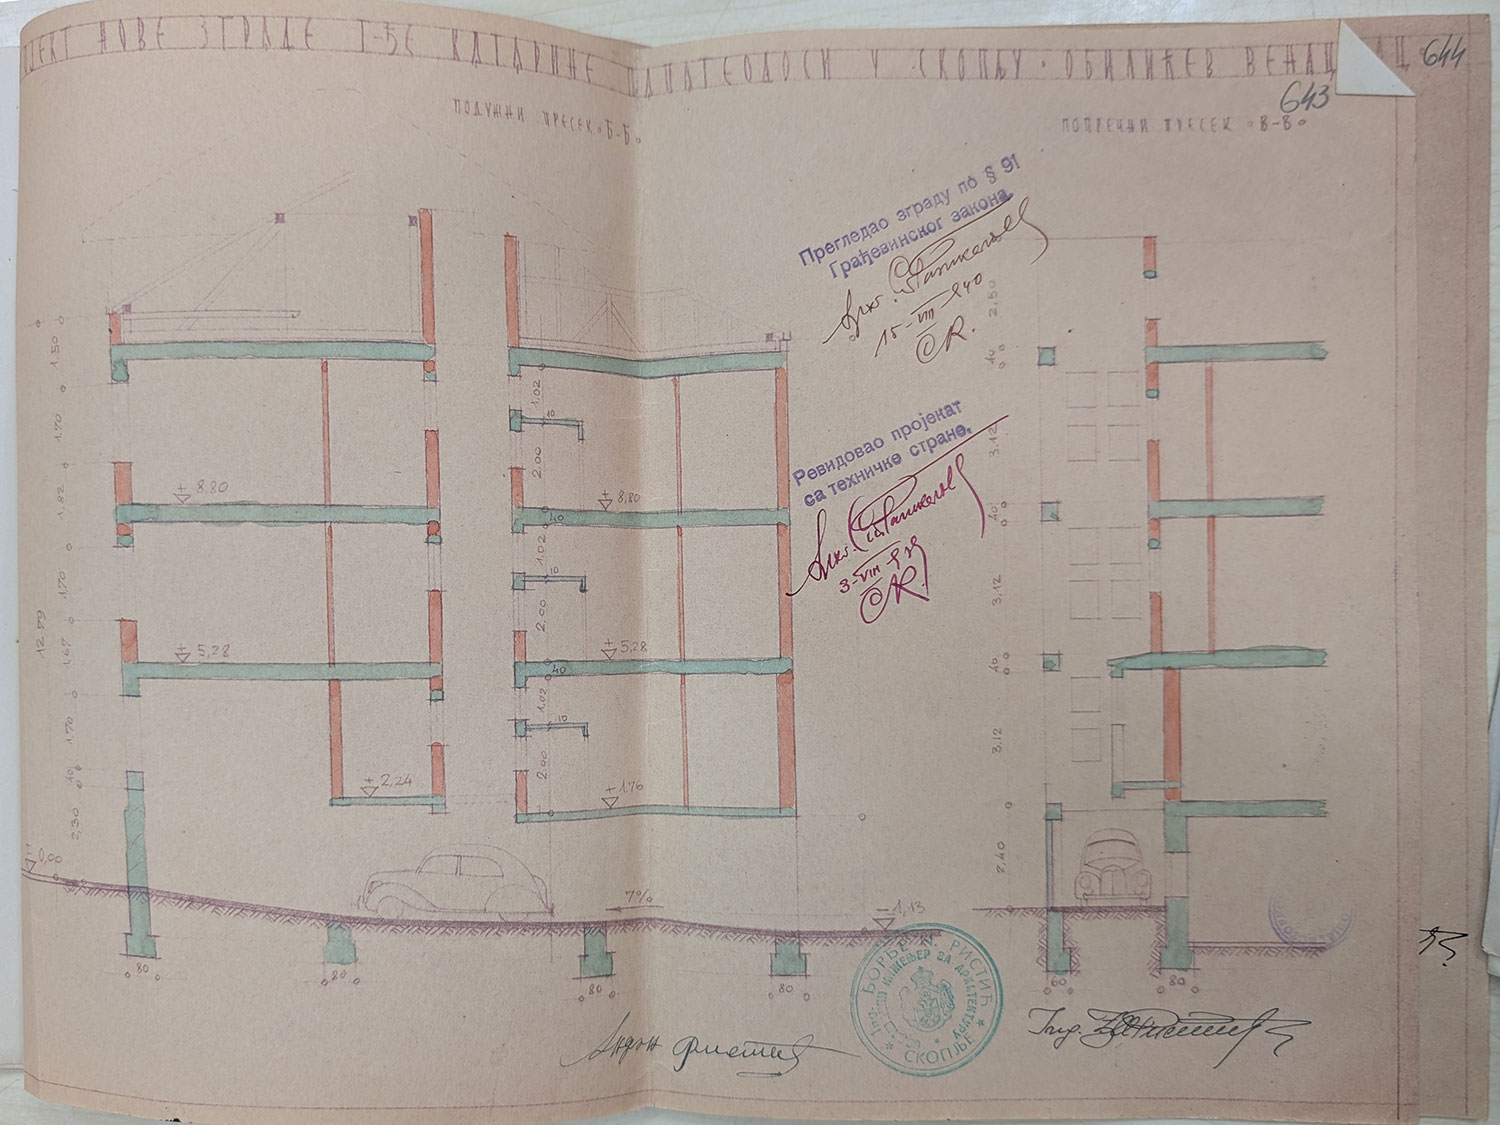 ЈЕКТ НОВЕ ЗГРАДЕ Г-ЂЕ КАТАРИНЕ ПАПАТЕОДОСИ У СКОПЉУ · ОБИЛИЋЕВ ВЕНАЦ
644
643
ПОДУЖНИ ПРЕСЕК "Б-Б"
ПОПРЕЧНИ ПРЕСЕК "В-В"
Прегледао зграду по § 91
Грађевинског закона.
15-VIII-940
Ревидовао пројекат
са техничке стране.
3-VIII-939
1.50
1.70
1.82
1.70
1.67
1.70
40
2,30
12.59
+ 8.80
+ 5,28
+ 2,24
0,00
1.02
10
2.00
+ 8,80
40
1.02
10
2.00
+ 5,28
40
1.02
10
2.00
+ 1.76
7%
- 1,13
2.50
40
3.12
40
3.12
40
3.12
2,40
80
80
80
80
60
80
Инг. ЂОРЂЕ К. РИСТИЋ
ИНЖЕЊЕР ЗА АРХИТЕКТУРУ
* СКОПЉЕ *